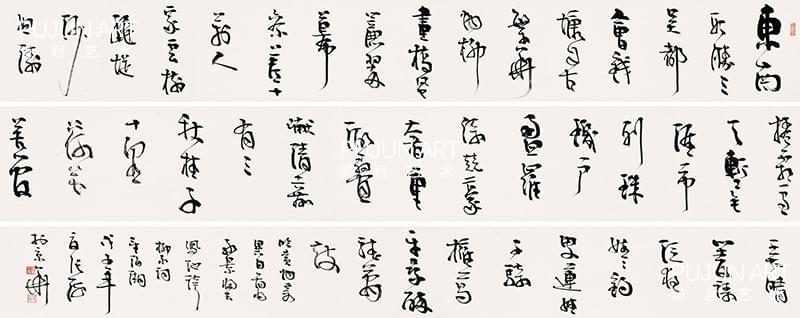 東南
形勝三
吳都
會錢
塘自古
繁華
煙柳
畫橋風
簾翠
幕
參差十
萬人
家雲樹
繞堤
沙
怒濤
捲霜雪
天塹無
涯市
列珠
璣戶
盈羅
綺競豪
奢重
湖疊
巘清嘉
有三
秋桂子
十里
荷花
羌管
弄晴
菱歌
泛夜
嬉嬉釣
叟蓮娃
千騎
擁高
牙乘醉
聽簫
鼓
吟賞煙霞
異日圖將
好景歸去
鳳池誇
柳永詞
望海潮
戊子年
於京華
PUJUN ART